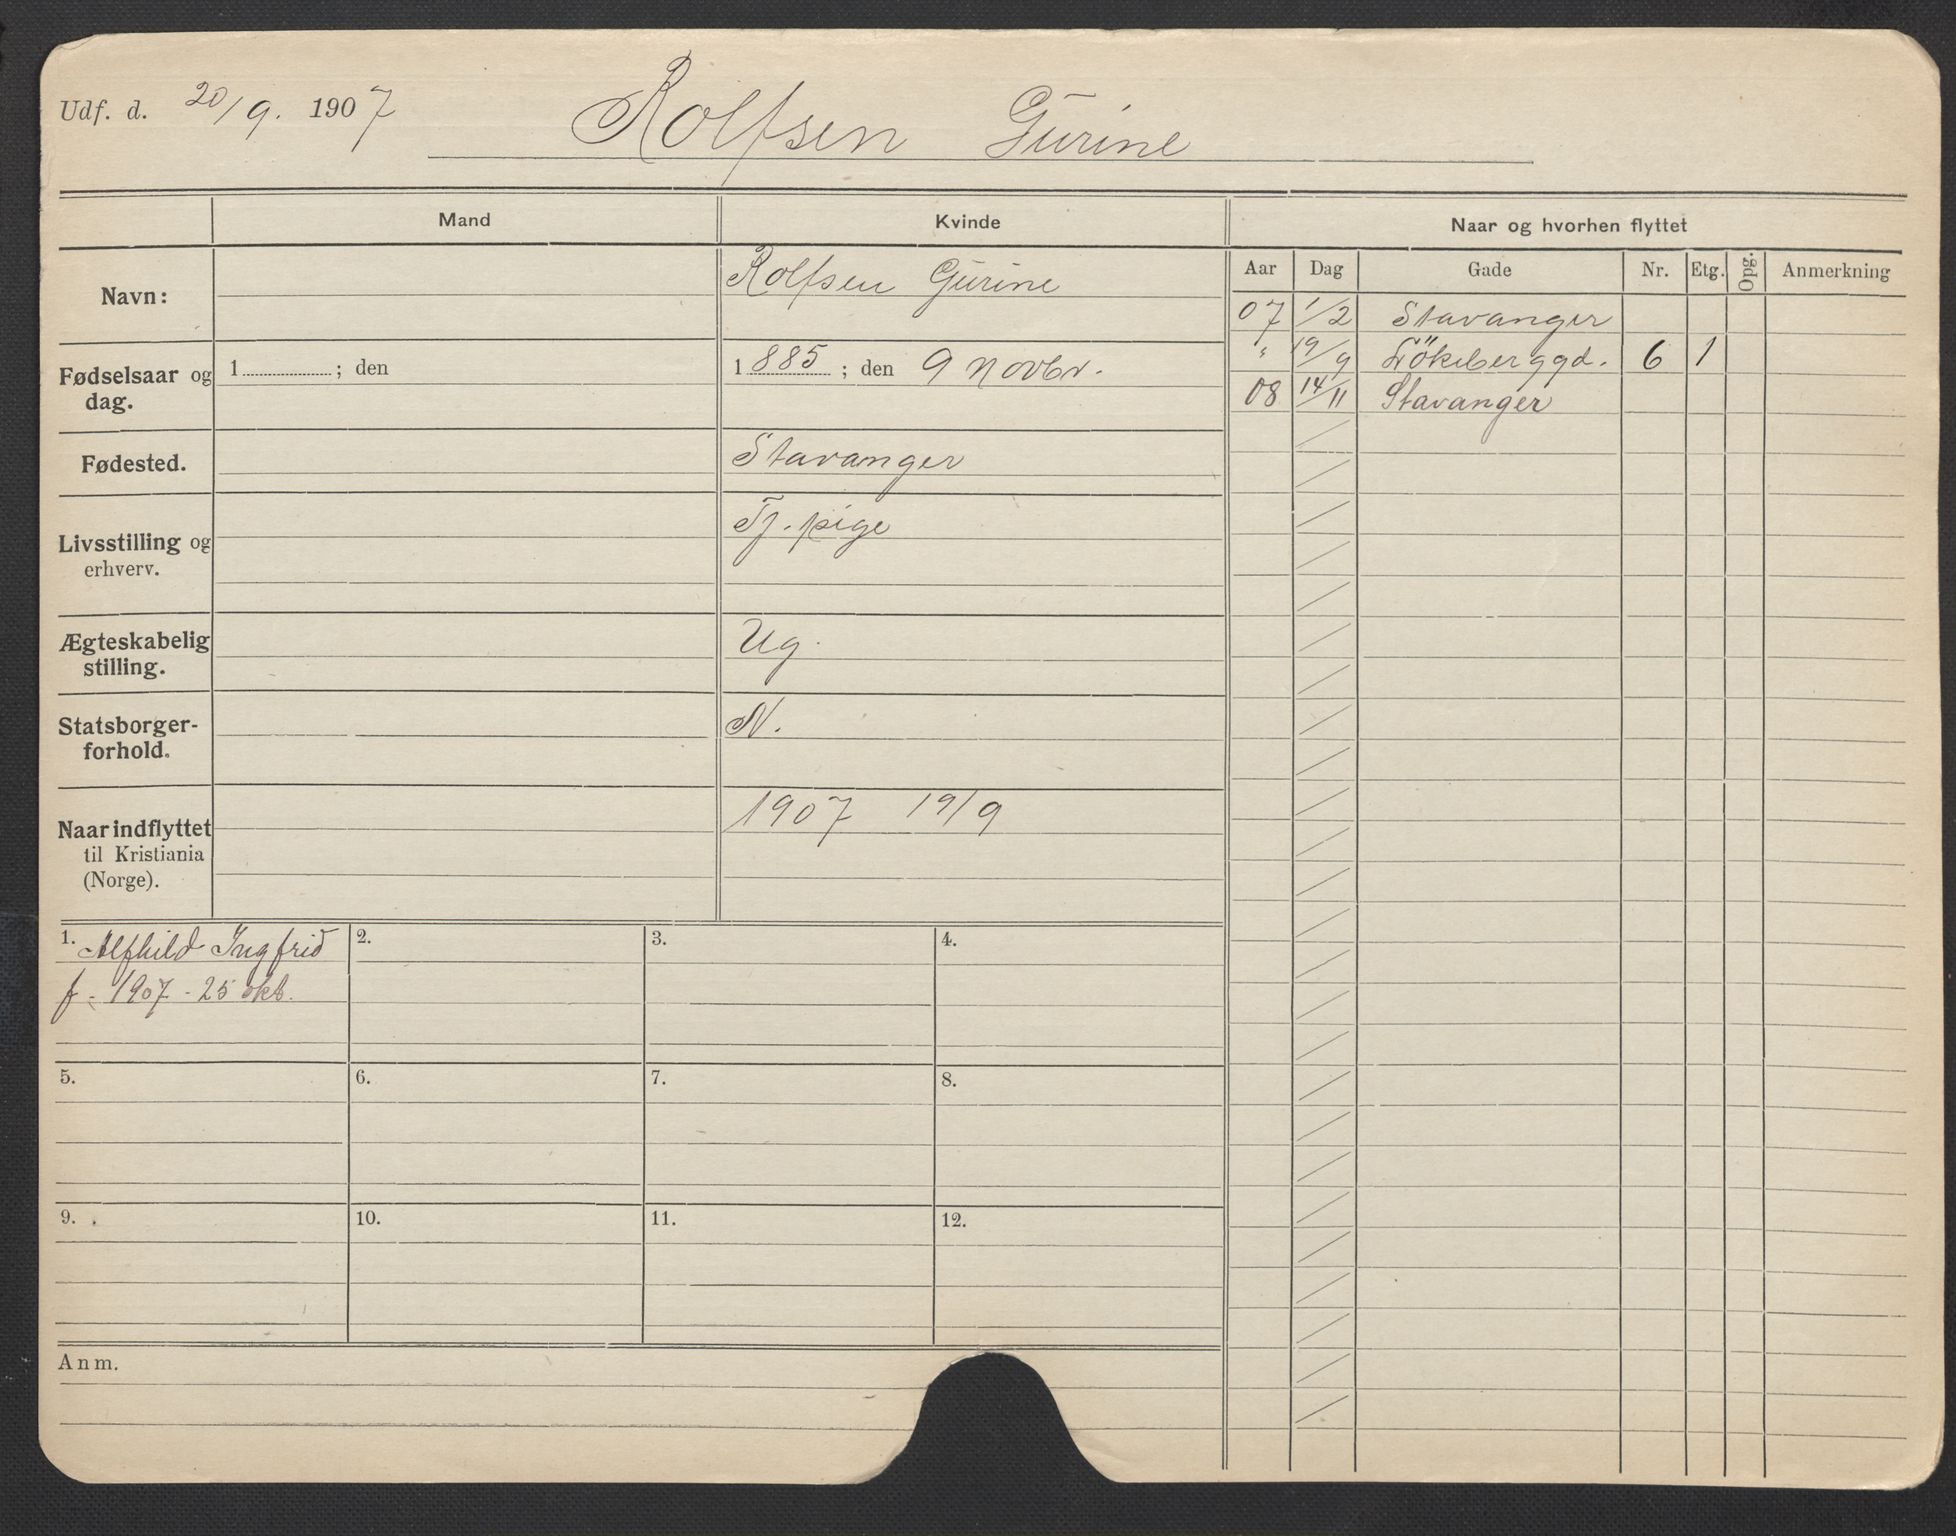 Udf. d. 20/9. 1907 Rolfsen Gurine
Mand Kvinde Naar og hvorhen flyttet
Aar Dag Gade Nr. Etg. Opg. Anmerkning
Navn: Rolfsen Gurine
07 1/2 Stavanger
Fødselsaar og dag. 1 ; den 1885 ; den 9 Novbr.
" 19/9 Lökkeberggd. 6 1
08 14/11 Stavanger
Fødested. Stavanger
Livsstilling og erhverv. Tj. pige
Ægteskabelig stilling. Ug.
Statsborger-forhold. N.
Naar indflyttet til Kristiania (Norge). 1907 19/9
1. Alfhild Ingfrid
f. 1907 - 25 okb.
2.
3.
4.
5.
6.
7.
8.
9.
10.
11.
12.
Anm.